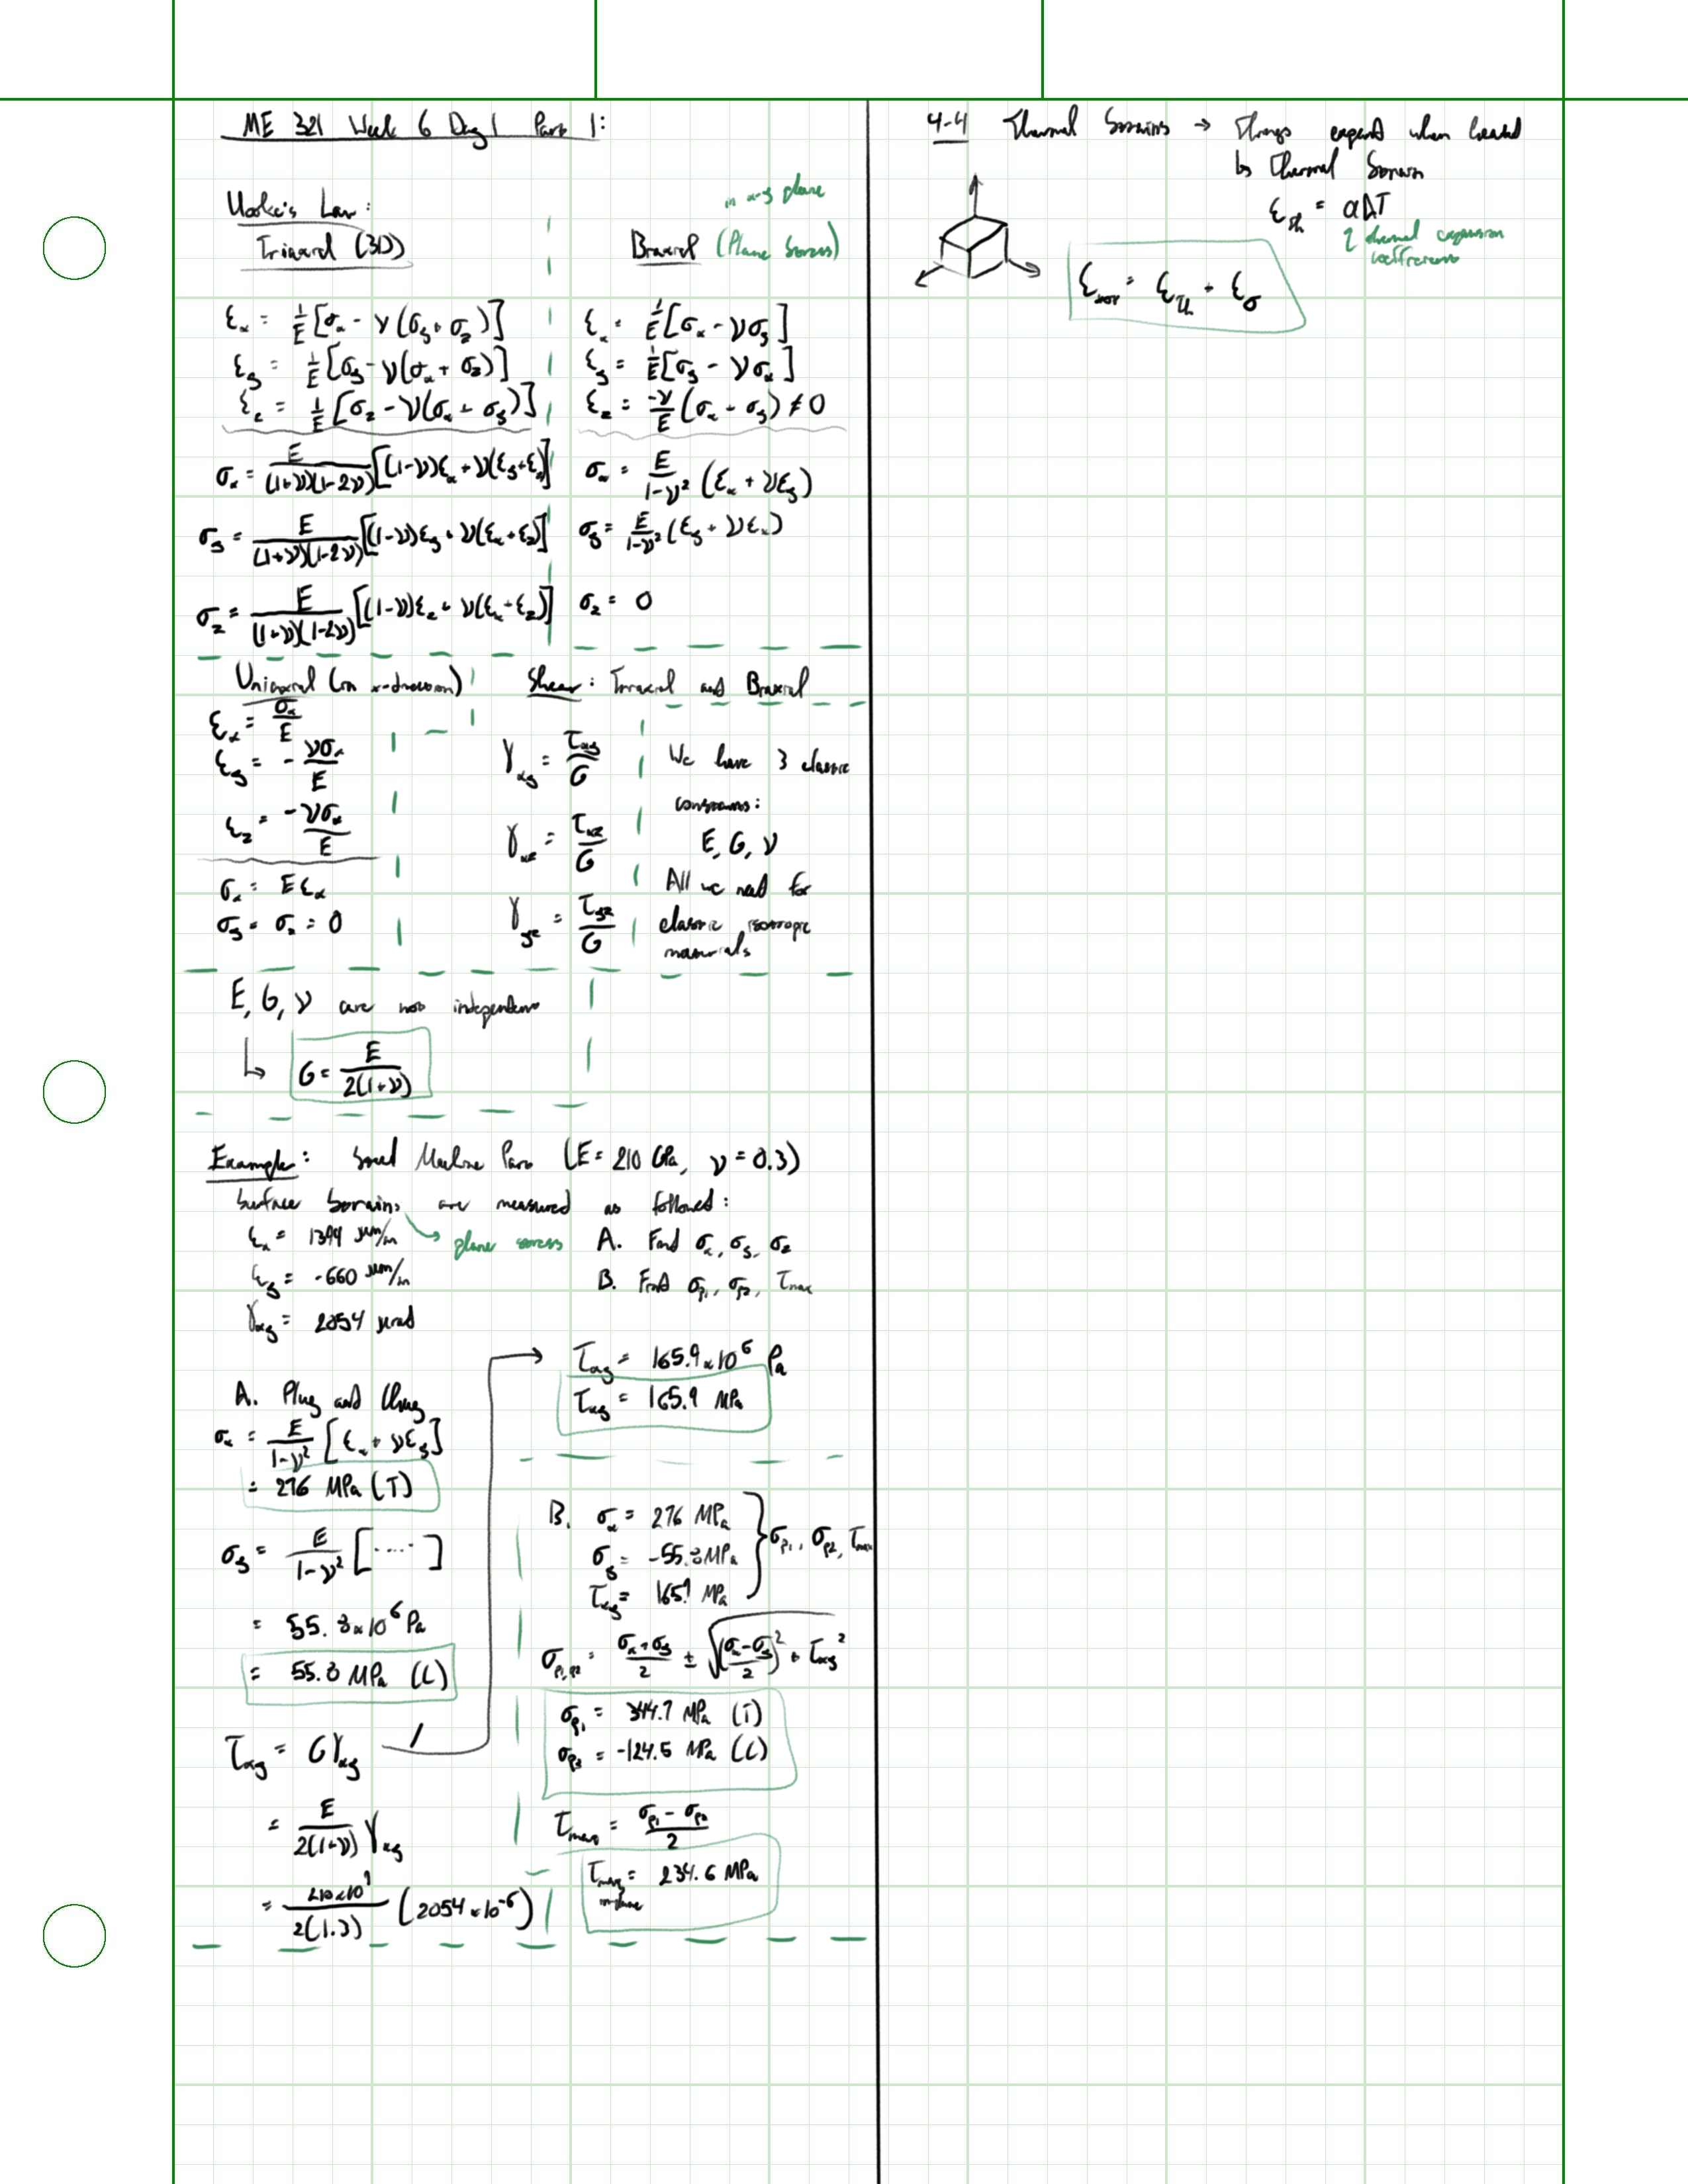 ME 321 Week 6 Day 1 Part 1:
Hooke's Law:
Triaxial (3D)
εx = 1/E [σx - ν(σy + σz)]
εy = 1/E [σy - ν(σx + σz)]
εz = 1/E [σz - ν(σx + σy)]
σx = E/((1+ν)(1-2ν)) [(1-ν)εx + ν(εy+εz)]
σy = E/((1+ν)(1-2ν)) [(1-ν)εy + ν(εx+εz)]
σz = E/((1+ν)(1-2ν)) [(1-ν)εz + ν(εx+εz)]
in x-y plane
Biaxial (Plane Stress)
εx = 1/E [σx - νσy]
εy = 1/E [σy - νσx]
εz = -ν/E (σx + σy) ≠ 0
σx = E/(1-ν²) (εx + νεy)
σy = E/(1-ν²) (εy + νεx)
σz = 0
Uniaxial (in x-direction)
εx = σx/E
εy = - νσx/E
εz = -νσx/E
σx = Eεx
σy = σz = 0
Shear: Triaxial and Biaxial
γxy = τxy/G
γxz = τxz/G
γyz = τyz/G
We have 3 elastic
constants:
E, G, ν
All we need for
elastic isotropic
materials
E, G, ν are not independent
↳ G = E/(2(1+ν))
Example: Steel Machine Part (E = 210 GPa, ν = 0.3)
Surface strains are measured as followed:
→ plane stress
εx = 1394 μin/in
εy = -660 μin/in
γxy = 2054 μrad
A. Find σx, σy, σz
B. Find σp1, σp2, τmax
A. Plug and Chug
σx = E/(1-ν²) [εx + νεy]
= 276 MPa (T)
σy = E/(1-ν²) [.....]
= 55.8×10⁶ Pa
= 55.8 MPa (C)
τxy = Gγxy
= E/(2(1+ν)) γxy
= 210×10⁹/(2(1.3)) (2054×10⁻⁶)
τxy = 165.9×10⁶ Pa
τxy = 165.9 MPa
B. σx = 276 MPa
σy = -55.8 MPa
τxy = 165.9 MPa
} σp1, σp2, τmax
σp1,p2 = (σx+σy)/2 ± √(((σx-σy)/2)² + τxy²)
σp1 = 344.7 MPa (T)
σp2 = -124.5 MPa (C)
τmax = (σp1 - σp2)/2
τmax in-plane = 234.6 MPa
4-4 Thermal Strains → Things expand when heated
by Thermal Strain
εth = αΔT
thermal expansion
coefficient
εtot = εth + εσ